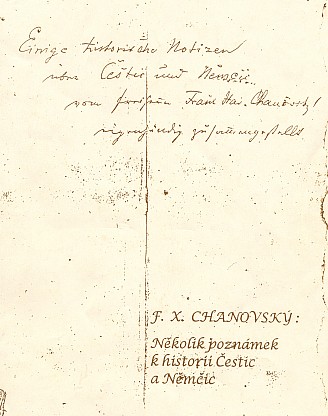 Einige historische Notizen
über Čestic und Němčic
vom Freiherrn Franz Xav. Chanovský
eigenhändig zusammengestellt
F. X. CHANOVSKÝ :
Několik poznámek
k historii Čestic
a Němčic